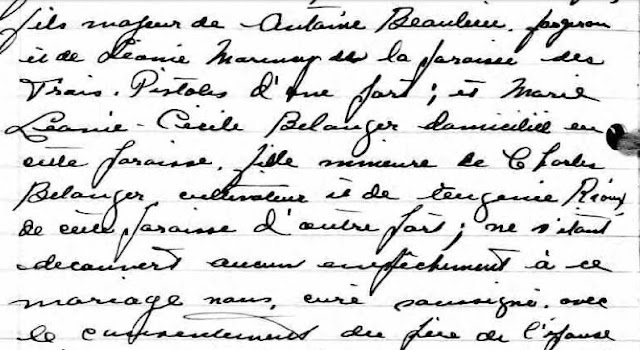 fils majeur de Antoine Beaulieu, forgeron
et de Léonie Marmay de la paroisse des
Trois-Pistoles d'une part; et Marie
Léonie-Cécile Belanger domiciliée en
cette paroisse, fille mineure de Charles
Belanger, cultivateur et de Eugenie Rioux
de cette paroisse d'autre part; ne s'étant
decouvert aucun empêchement à ce
mariage nous, curé soussigné, avec
le consentement du père de l'épouse